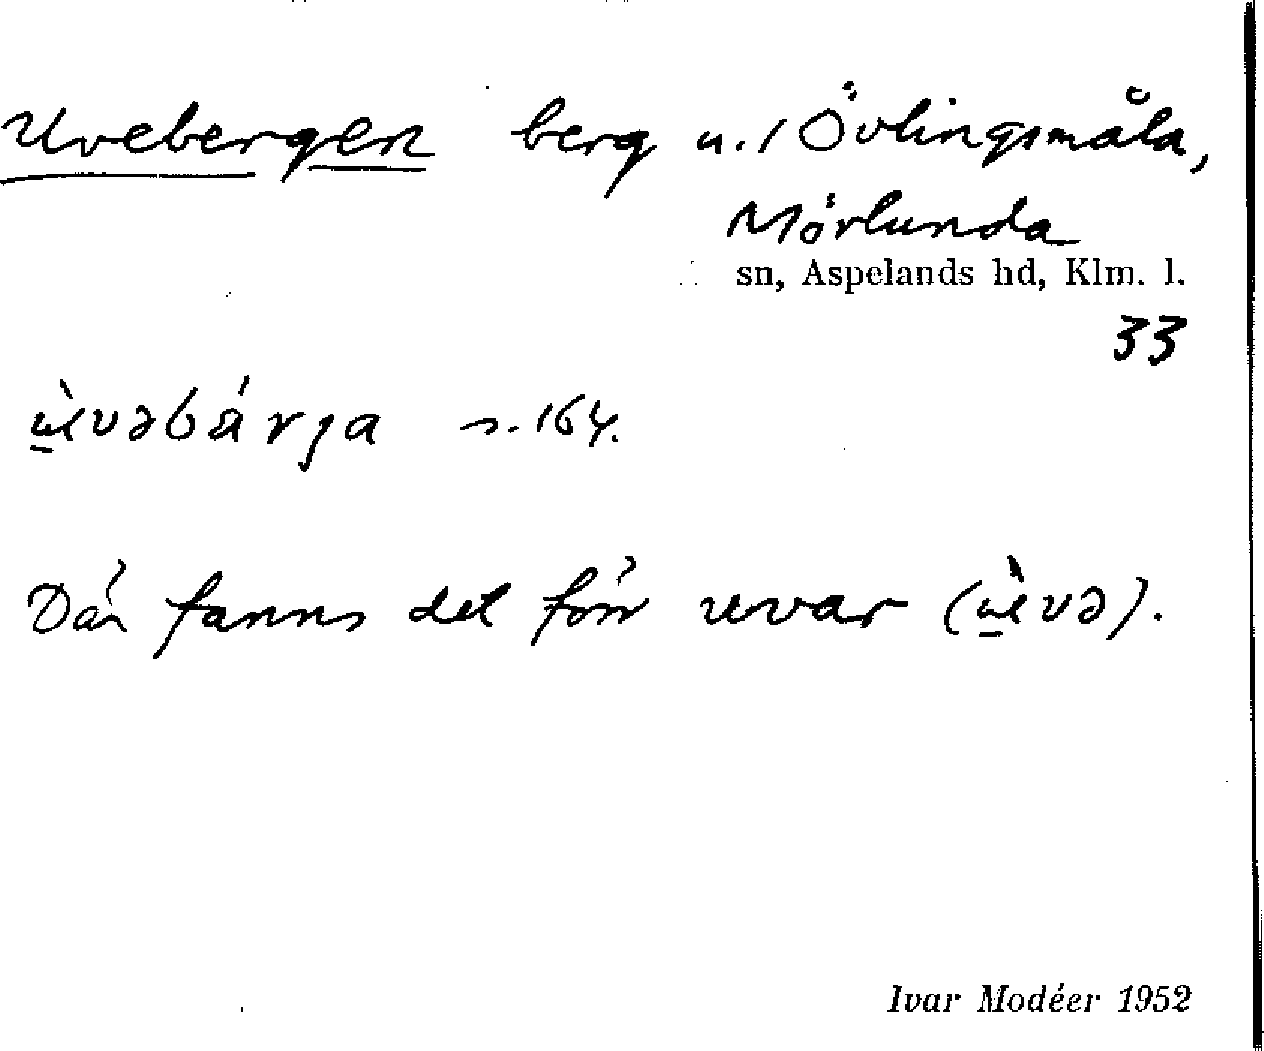 Uvebergen berg u. 1 Övlingsmåla,
Mörlunda
sn, Aspelands hd, Klm. l.
33
ù̱vəbárja s. 164.
Där fanns det förr uvar (ù̱və).
Ivar Modéer 1952